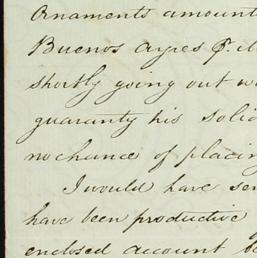 Ornaments amount
Buenos Ayres &
shortly going out
guaranty his solid
no chance of placin
I would have sen
have been productive
enclosed account